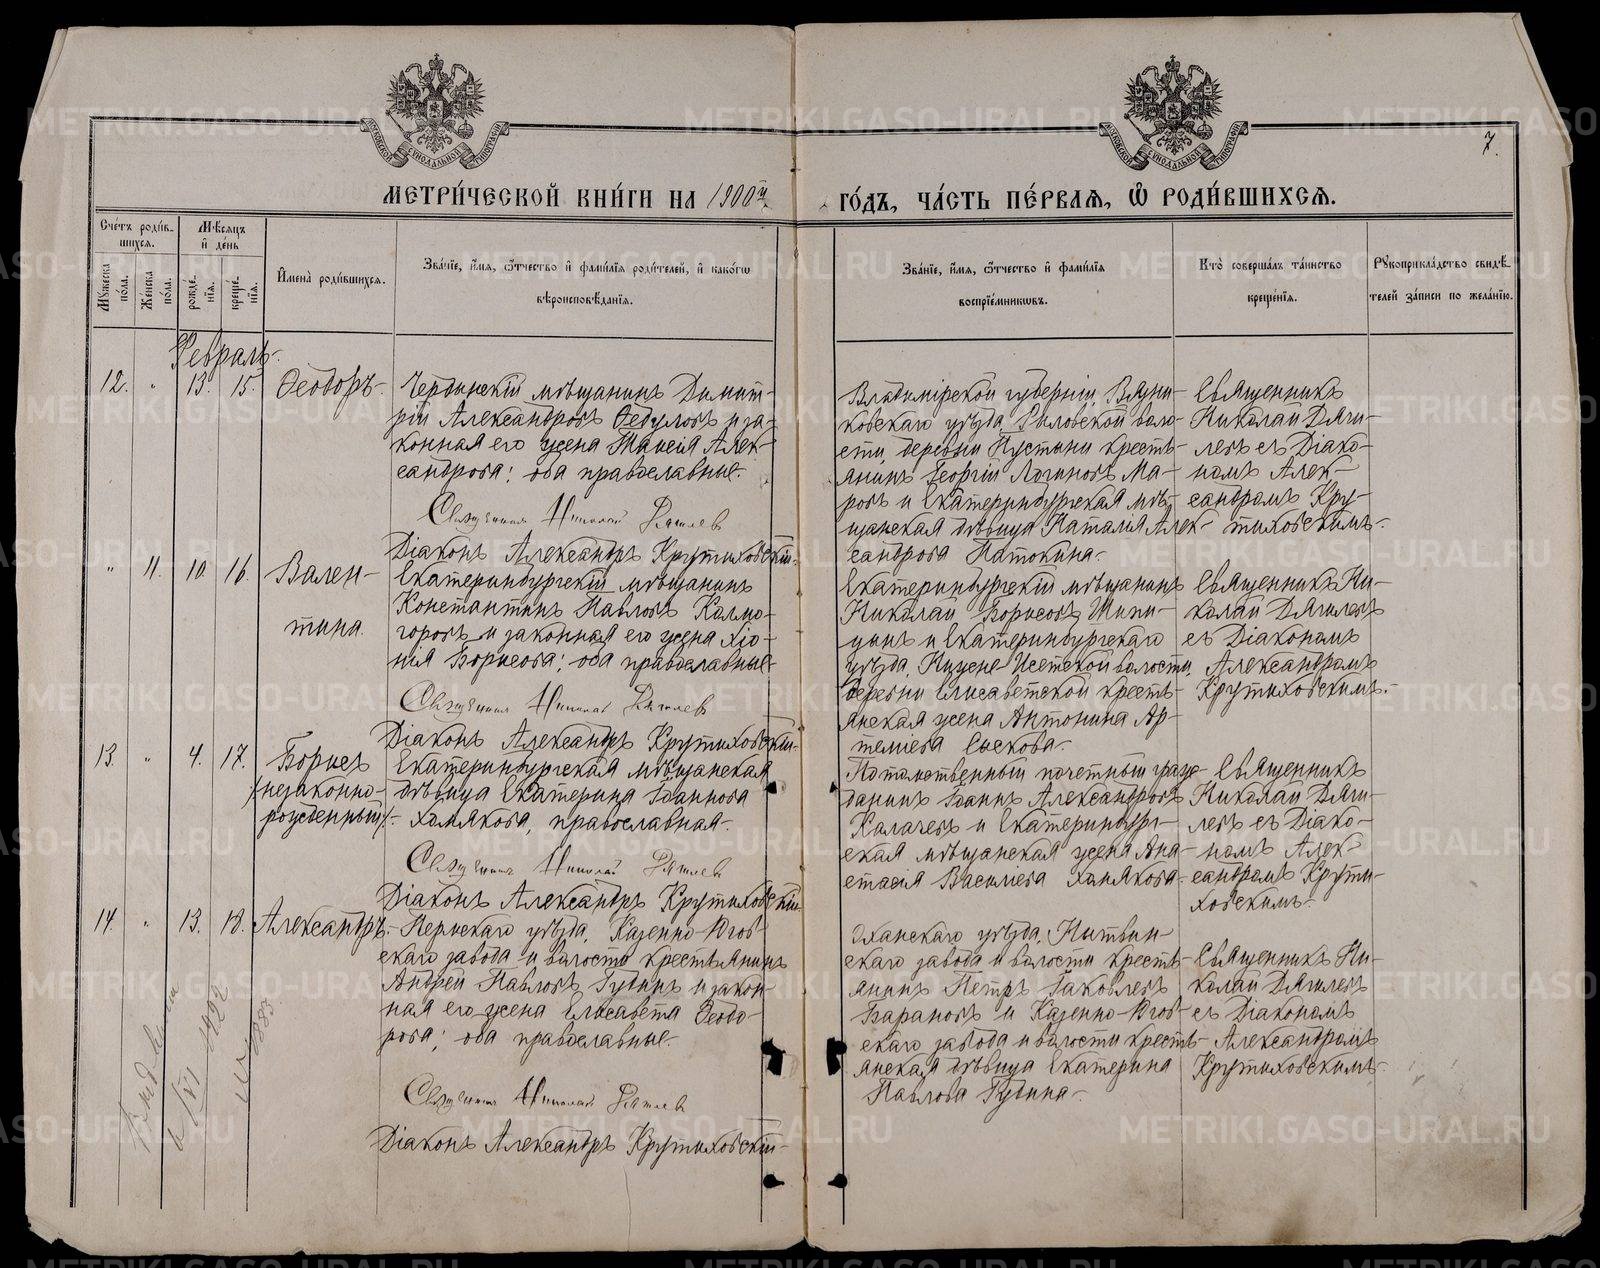 МЕТРИ́ЧЕСКОЙ КНИ́ГИ НА 1900й ГО́ДЪ, ЧА́СТЬ ПЕ́РВАѦ, Ѡ РОДИ́ВШИХСѦ.
7.
Сче́тъ роди́в-
шихся.
Му́жеска по́ла.
Же́нска по́ла.
Мѣ́сяцъ и де́нь
рожде́-
нія.
креще́-
нія.
Имена̀ роди́вшихся.
Зва́ніе, и́мя, о́тчество и фами́лія роди́телей, и како́гѡ
вѣроисповѣ́данія.
Зва́ніе, и́мя, о́тчество и фами́лія
воспріе́мникѡвъ.
Кто̀ соверша́лъ та́инство
креще́нія.
Рукоприкла́дство свидѣ́-
телей за́писи по жела́нію.
Февраль.
12. " 13. 15. Ѳеодоръ.
Чердынскій мѣщанинъ Димит-
рій Александровъ Федуловъ и за-
конная его жена Таисія Алек-
сандрова; оба православные.
Священник Николай Дягилев
Діаконъ Александръ Крутиховскій.
Владимірской губерніи, Вязни-
ковскаго уѣзда, Рыловской воло-
сти, деревни Пустыни кресть-
янинъ Георгій Логиновъ Ма-
ровъ и Екатеринбургская мѣ-
щанская дѣвица Наталія Алек-
сандрова Патокина.
Священникъ
Николай Дяги-
левъ съ Діако-
номъ Алек-
сандромъ Кру-
тиховскимъ.
" 11. 10. 16. Вален-
тина.
Екатеринбургскій мѣщанинъ
Константинъ Павловъ Калмо-
горовъ и законная его жена Хіо-
нія Борисова; оба православные.
Священник Николай Дягилев
Діаконъ Александръ Крутиховскій.
Екатеринбургскій мѣщанинъ
Николай Борисовъ Шипи-
цынъ и Екатеринбургскаго
уѣзда, Нижне-Исетской волости,
деревни Елисаветской кресть-
янская жена Антонина Ар-
теміева Сыскова.
Священникъ Ни-
колай Дягилевъ
съ Діакономъ
Александромъ
Крутиховскимъ.
13. " 4. 17. Борисъ
/незаконно-
рожденный/.
Екатеринбургская мѣщанская
дѣвица Екатерина Іоаннова
Хамякова, православная.
Священник Николай Дягилев
Діаконъ Александръ Крутиховскій.
Потомственный почетный граж-
данинъ Іоаннъ Александровъ
Калачевъ и Екатеринбург-
ская мѣщанская жена Ана-
стасія Василіева Хамякова.
Священникъ
Николай Дяги-
левъ съ Діако-
номъ Алек-
сандромъ Крути-
ховскимъ.
14. " 13. 18. Александръ.
Пермскаго уѣзда, Казенно-Югов-
скаго завода и волости крестьянинъ
Андрей Павловъ Губинъ и закон-
ная его жена Елисавета Ѳеодо-
рова; оба православные.
Священник Николай Дягилев
Діаконъ Александръ Крутиховскій.
Оханскаго уѣзда, Нытвин-
скаго завода и волости кресть-
янинъ Петръ Іаковлевъ
Барановъ и Казенно-Югов-
скаго завода и волости кресть-
янская дѣвица Екатерина
Павлова Губина.
Священникъ Ни-
колай Дягилевъ
съ Діакономъ
Александромъ
Крутиховскимъ.
№ 1883
METRIKI.GASO-URAL.RU